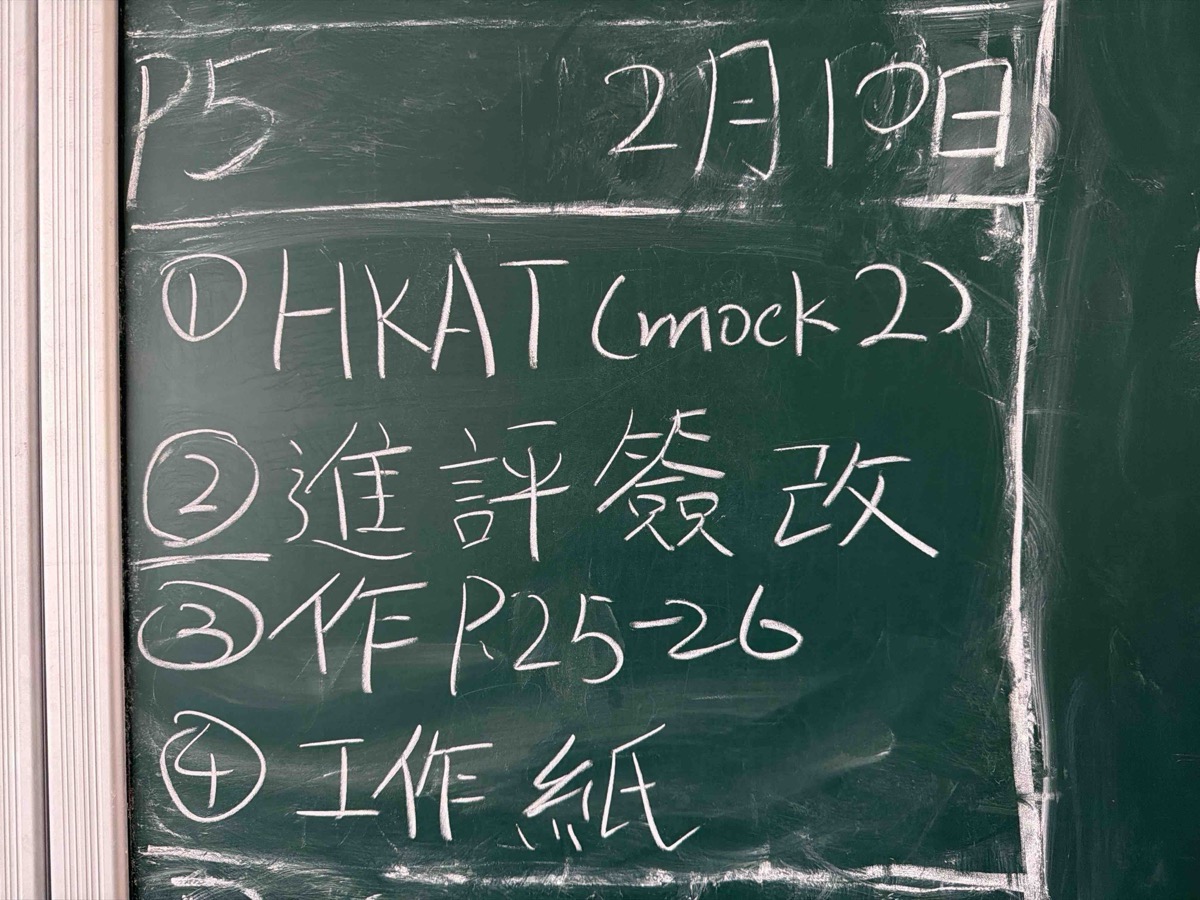 P5 2月10日
① HKAT (mock 2)
② 進評簽改
③ 作 P.25-26
④ 工作紙